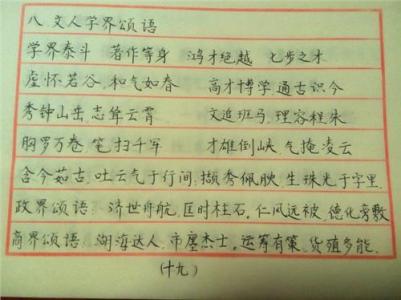 八 文人学界颂语
学界泰斗 著作等身 鸿才绝越 七步之才
虚怀若谷,和气如春 高才博学 通古识今
秀钟山岳,志耸云霄 文追班马,理容程朱
胸罗万卷,笔扫千军 才雄倒峡 气掩凌云
含今茹古,吐云气于行间;撷秀佩映,生珠光于字里.
政界颂语: 济世舟航,匡时柱石,仁风远被,德化旁敷
商界颂语 湖海达人,市廛杰士,运筹有策,货殖多能.
(十九)